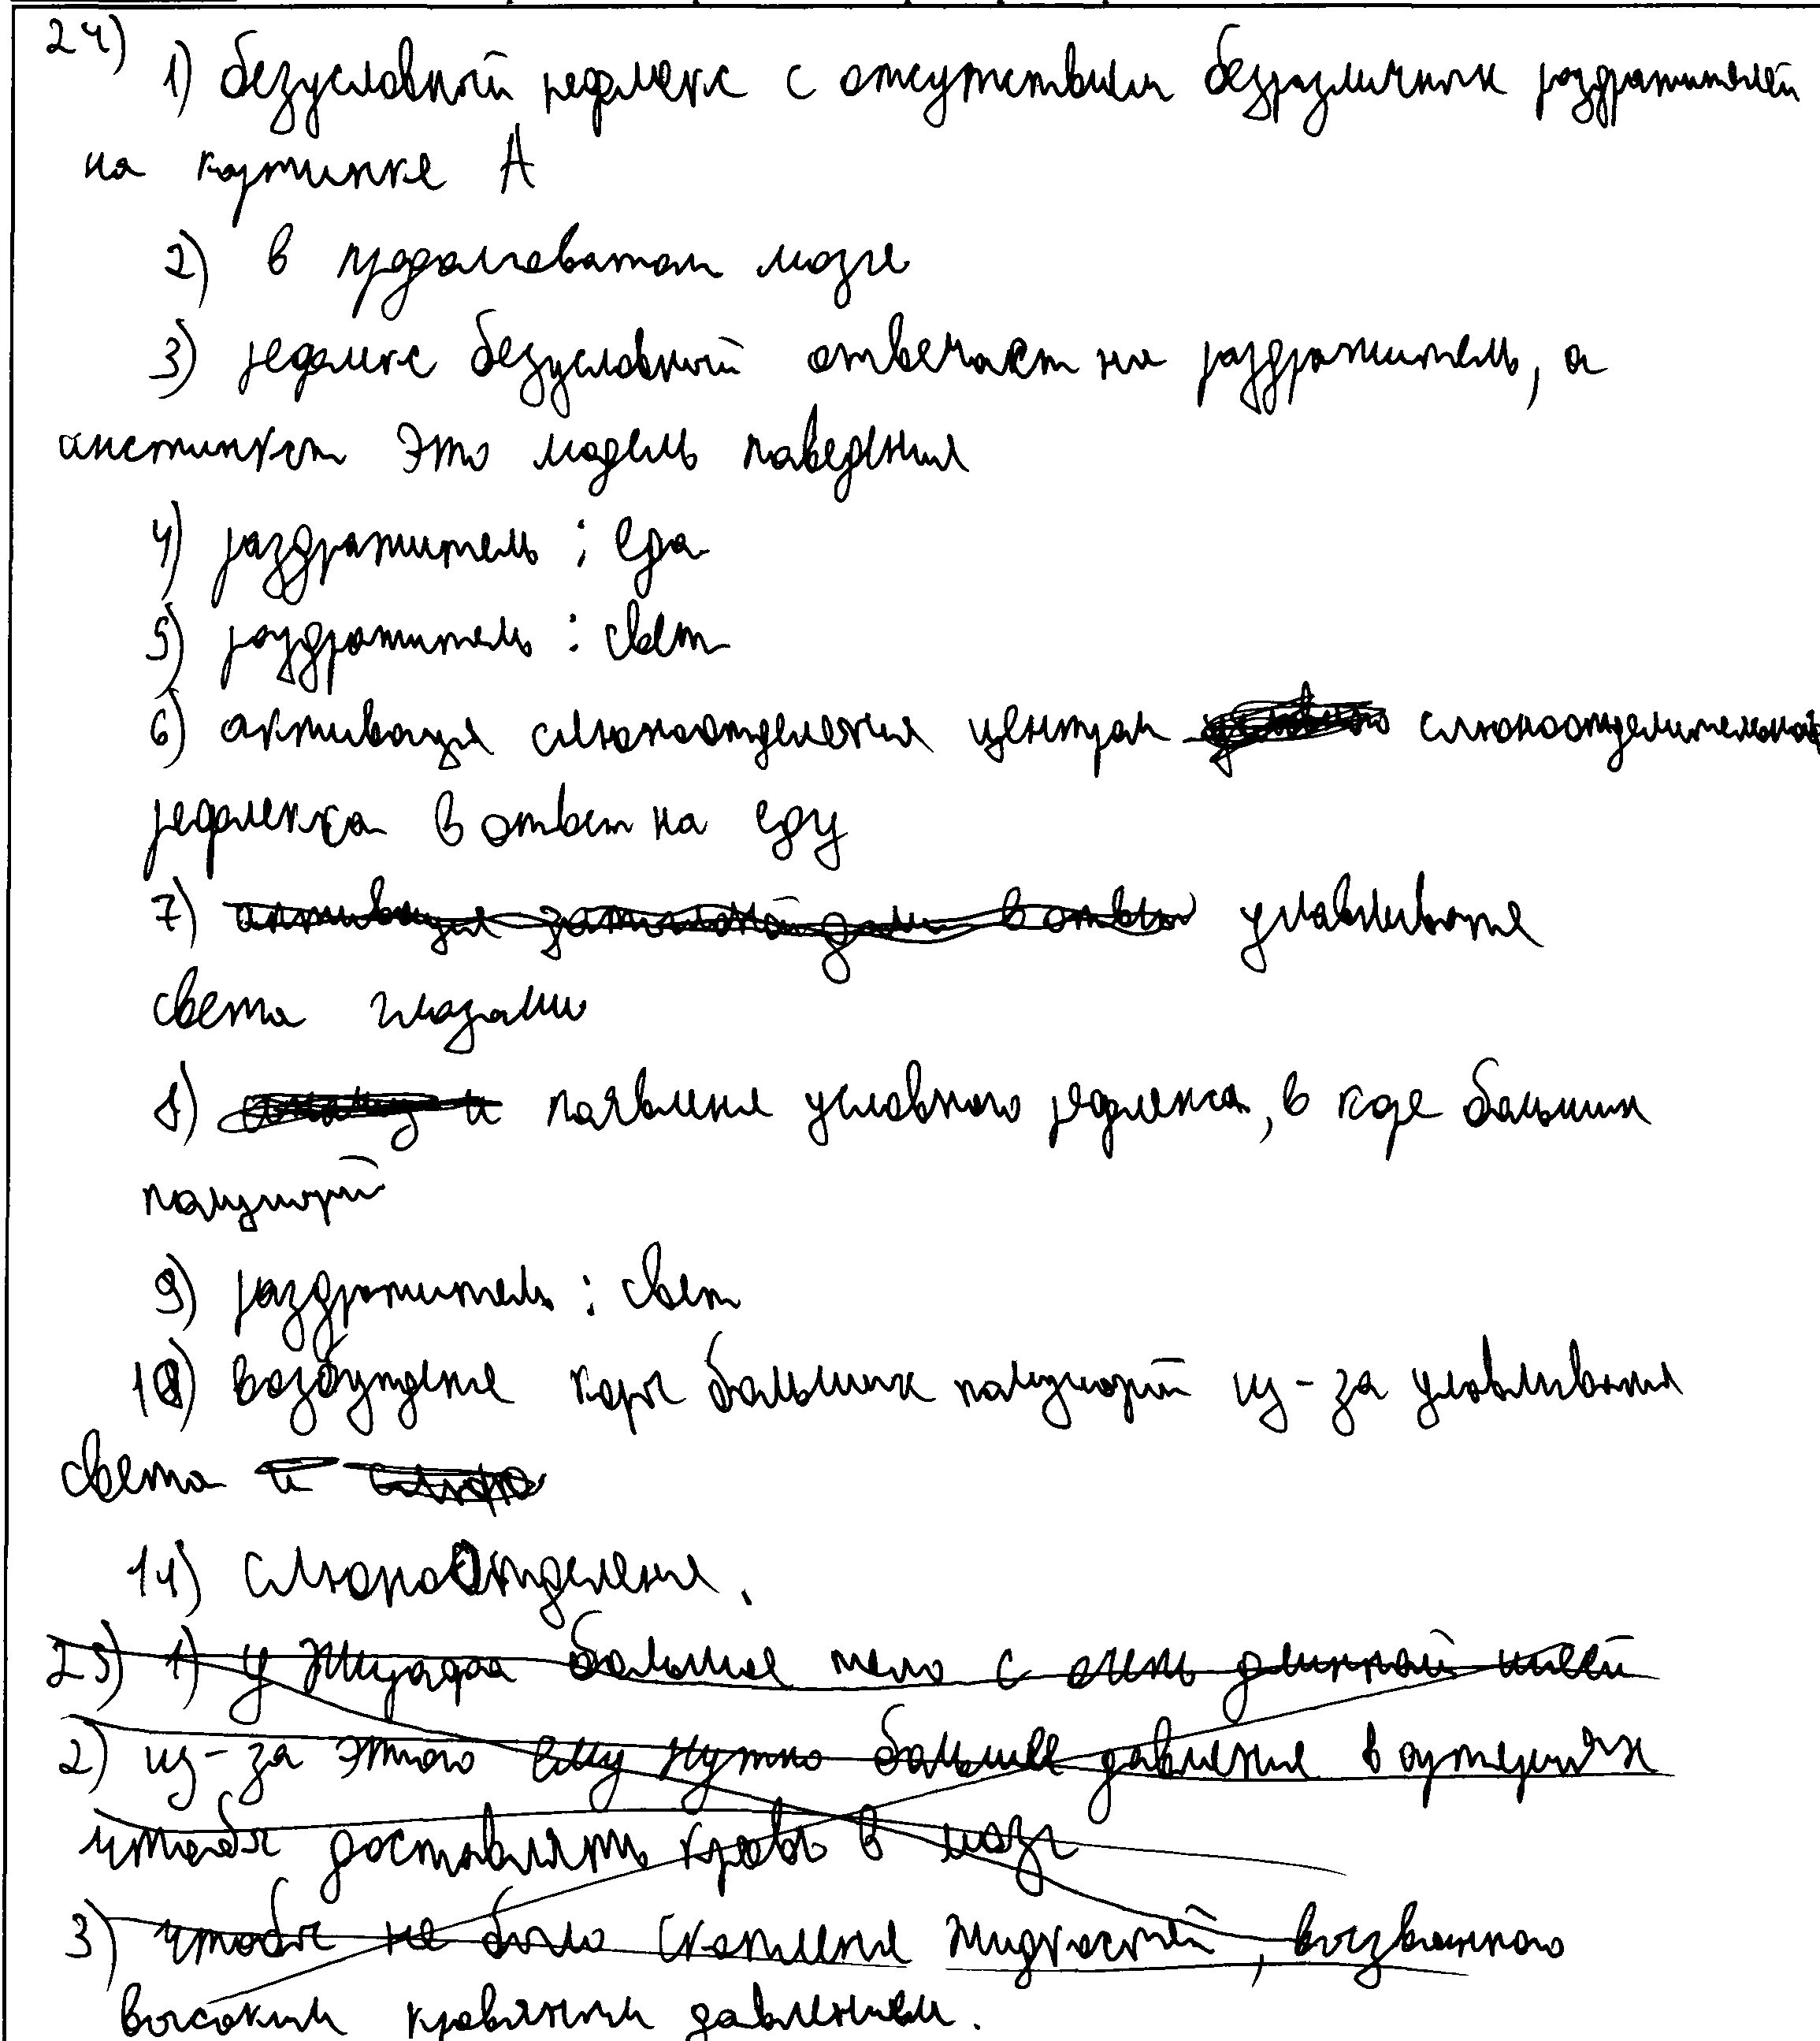 24)
1) безусловный рефлекс с отсутствием безразличных раздражителей
на картинке А
2) в продолговатом мозге
3) рефлекс безусловный отвечает на раздражитель, а
инстинкт это модель поведения
4) раздражитель : еда
5) раздражитель : свет
6) активация слюноотделения центром слюноотделительного
рефлекса в ответ на еду
7) активация затылочной доли в ответ улавливание
света глазами
8) появление условного рефлекса, в коре больших
полушарий
9) раздражитель : свет
10) возбуждение коры больших полушарий из-за улавливания
света и
11) слюноотделение.
25) 1) у жирафа большое тело с очень длинной шеей
2) из-за этого ему нужно большее давление в артериях
чтобы доставлять кровь в мозг
3) чтобы не было скопления жидкостей, вызванного
высоким кровяным давлением.